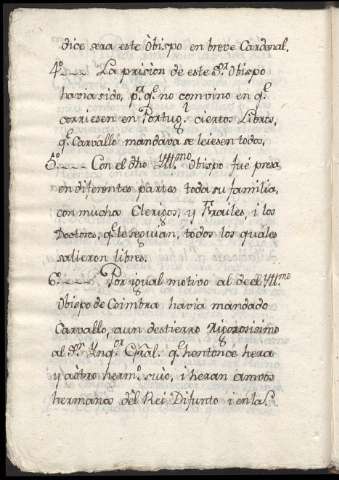 dice sera este Obispo en breve Cardenal.
4º. La prision de este Sr. Obispo
havia sido, pr. qe. no convino en qe.
corriesen en Portugl. ciertos Libros,
qe. Carvallo mandava se leiesen todos,
5º. Con el dho Yllmo. Obispo fué presa
en diferentes partes toda su familia,
con mucho Clerigos, y Frailes, i los
Doctores, qe. le seguian, todos los quales
salieron libres.
6º. Por igual motivo al de el Yllmo.
Obispo de Coimbra havia mandado
Carvallo, a un destierro rigorosisimo
al Sr. Ynqor. Gñal. qe. hentonce hera
y a otro hermo. suio, i heran ambos
hermanos del Rei Difunto i en la